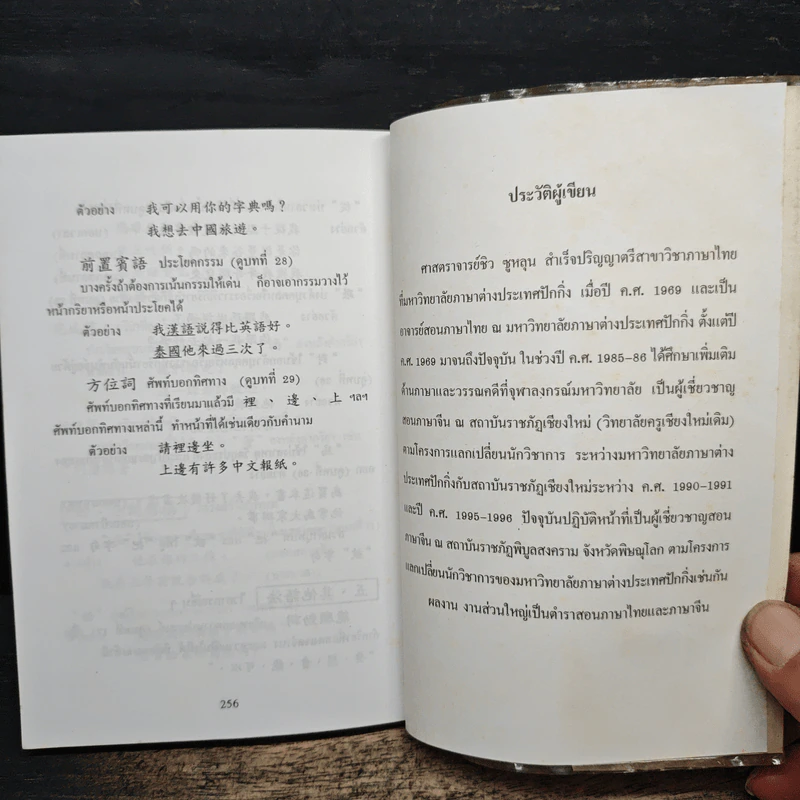 ตัวอย่าง 我可以用你的字典嗎？
我想去中國旅遊。
前置賓語 ประโยคกรรม (ดูบทที่ 28)
บางครั้งถ้าต้องการเน้นกรรมให้เด่น ก็อาจเอากรรมวางไว้
หน้ากริยาหรือหน้าประโยคได้
ตัวอย่าง 我漢語説得比英語好。
泰國他來過三次了。
方位詞 ศัพท์บอกทิศทาง (ดูบทที่ 29)
ศัพท์บอกทิศทางที่เรียนมาแล้วมี 裡、邊、上 ฯลฯ
ศัพท์บอกทิศทางเหล่านี้ ทำหน้าที่ได้เช่นเดียวกับคำนาม
ตัวอย่าง 請裡邊坐。
上邊有許多中文報紙。
256
ประวัติผู้เขียน
ศาสตราจารย์ชิว ซูหลุน สำเร็จปริญญาตรีสาขาวิชาภาษาไทย
ที่มหาวิทยาลัยภาษาต่างประเทศปักกิ่ง เมื่อปี ค.ศ. 1969 และเป็น
อาจารย์สอนภาษาไทย ณ มหาวิทยาลัยภาษาต่างประเทศปักกิ่ง ตั้งแต่ปี
ค.ศ. 1969 มาจนถึงปัจจุบัน ในช่วงปี ค.ศ. 1985–86 ได้ศึกษาเพิ่มเติม
ด้านภาษาและวรรณคดีที่จุฬาลงกรณ์มหาวิทยาลัย เป็นผู้เชี่ยวชาญ
สอนภาษาจีน ณ สถาบันราชภัฏเชียงใหม่ (วิทยาลัยครูเชียงใหม่เดิม)
ตามโครงการแลกเปลี่ยนนักวิชาการ ระหว่างมหาวิทยาลัยภาษาต่าง
ประเทศปักกิ่งกับสถาบันราชภัฏเชียงใหม่ระหว่าง ค.ศ. 1990–1991
และปี ค.ศ. 1995–1996 ปัจจุบันปฏิบัติหน้าที่เป็นผู้เชี่ยวชาญสอน
ภาษาจีน ณ สถาบันราชภัฏพิบูลสงคราม จังหวัดพิษณุโลก ตามโครงการ
แลกเปลี่ยนนักวิชาการของมหาวิทยาลัยภาษาต่างประเทศปักกิ่งเช่นกัน
ผลงาน งานส่วนใหญ่เป็นตำราสอนภาษาไทยและภาษาจีน